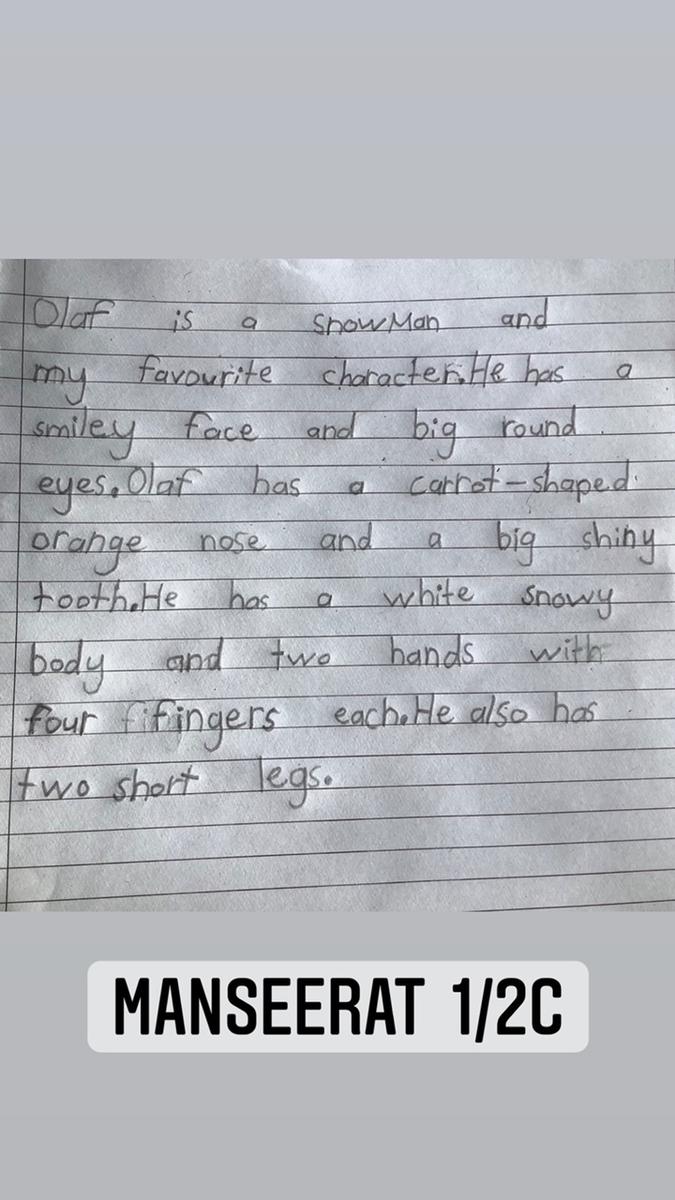 Olaf is a snowMan and
my favourite character.He has a
smiley face and big round
eyes.Olaf has a carrot-shaped
orange nose and a big shiny
tooth.He has a white snowy
body and two hands with
four fingers each.He also has
two short legs.
MANSEERAT 1/2C